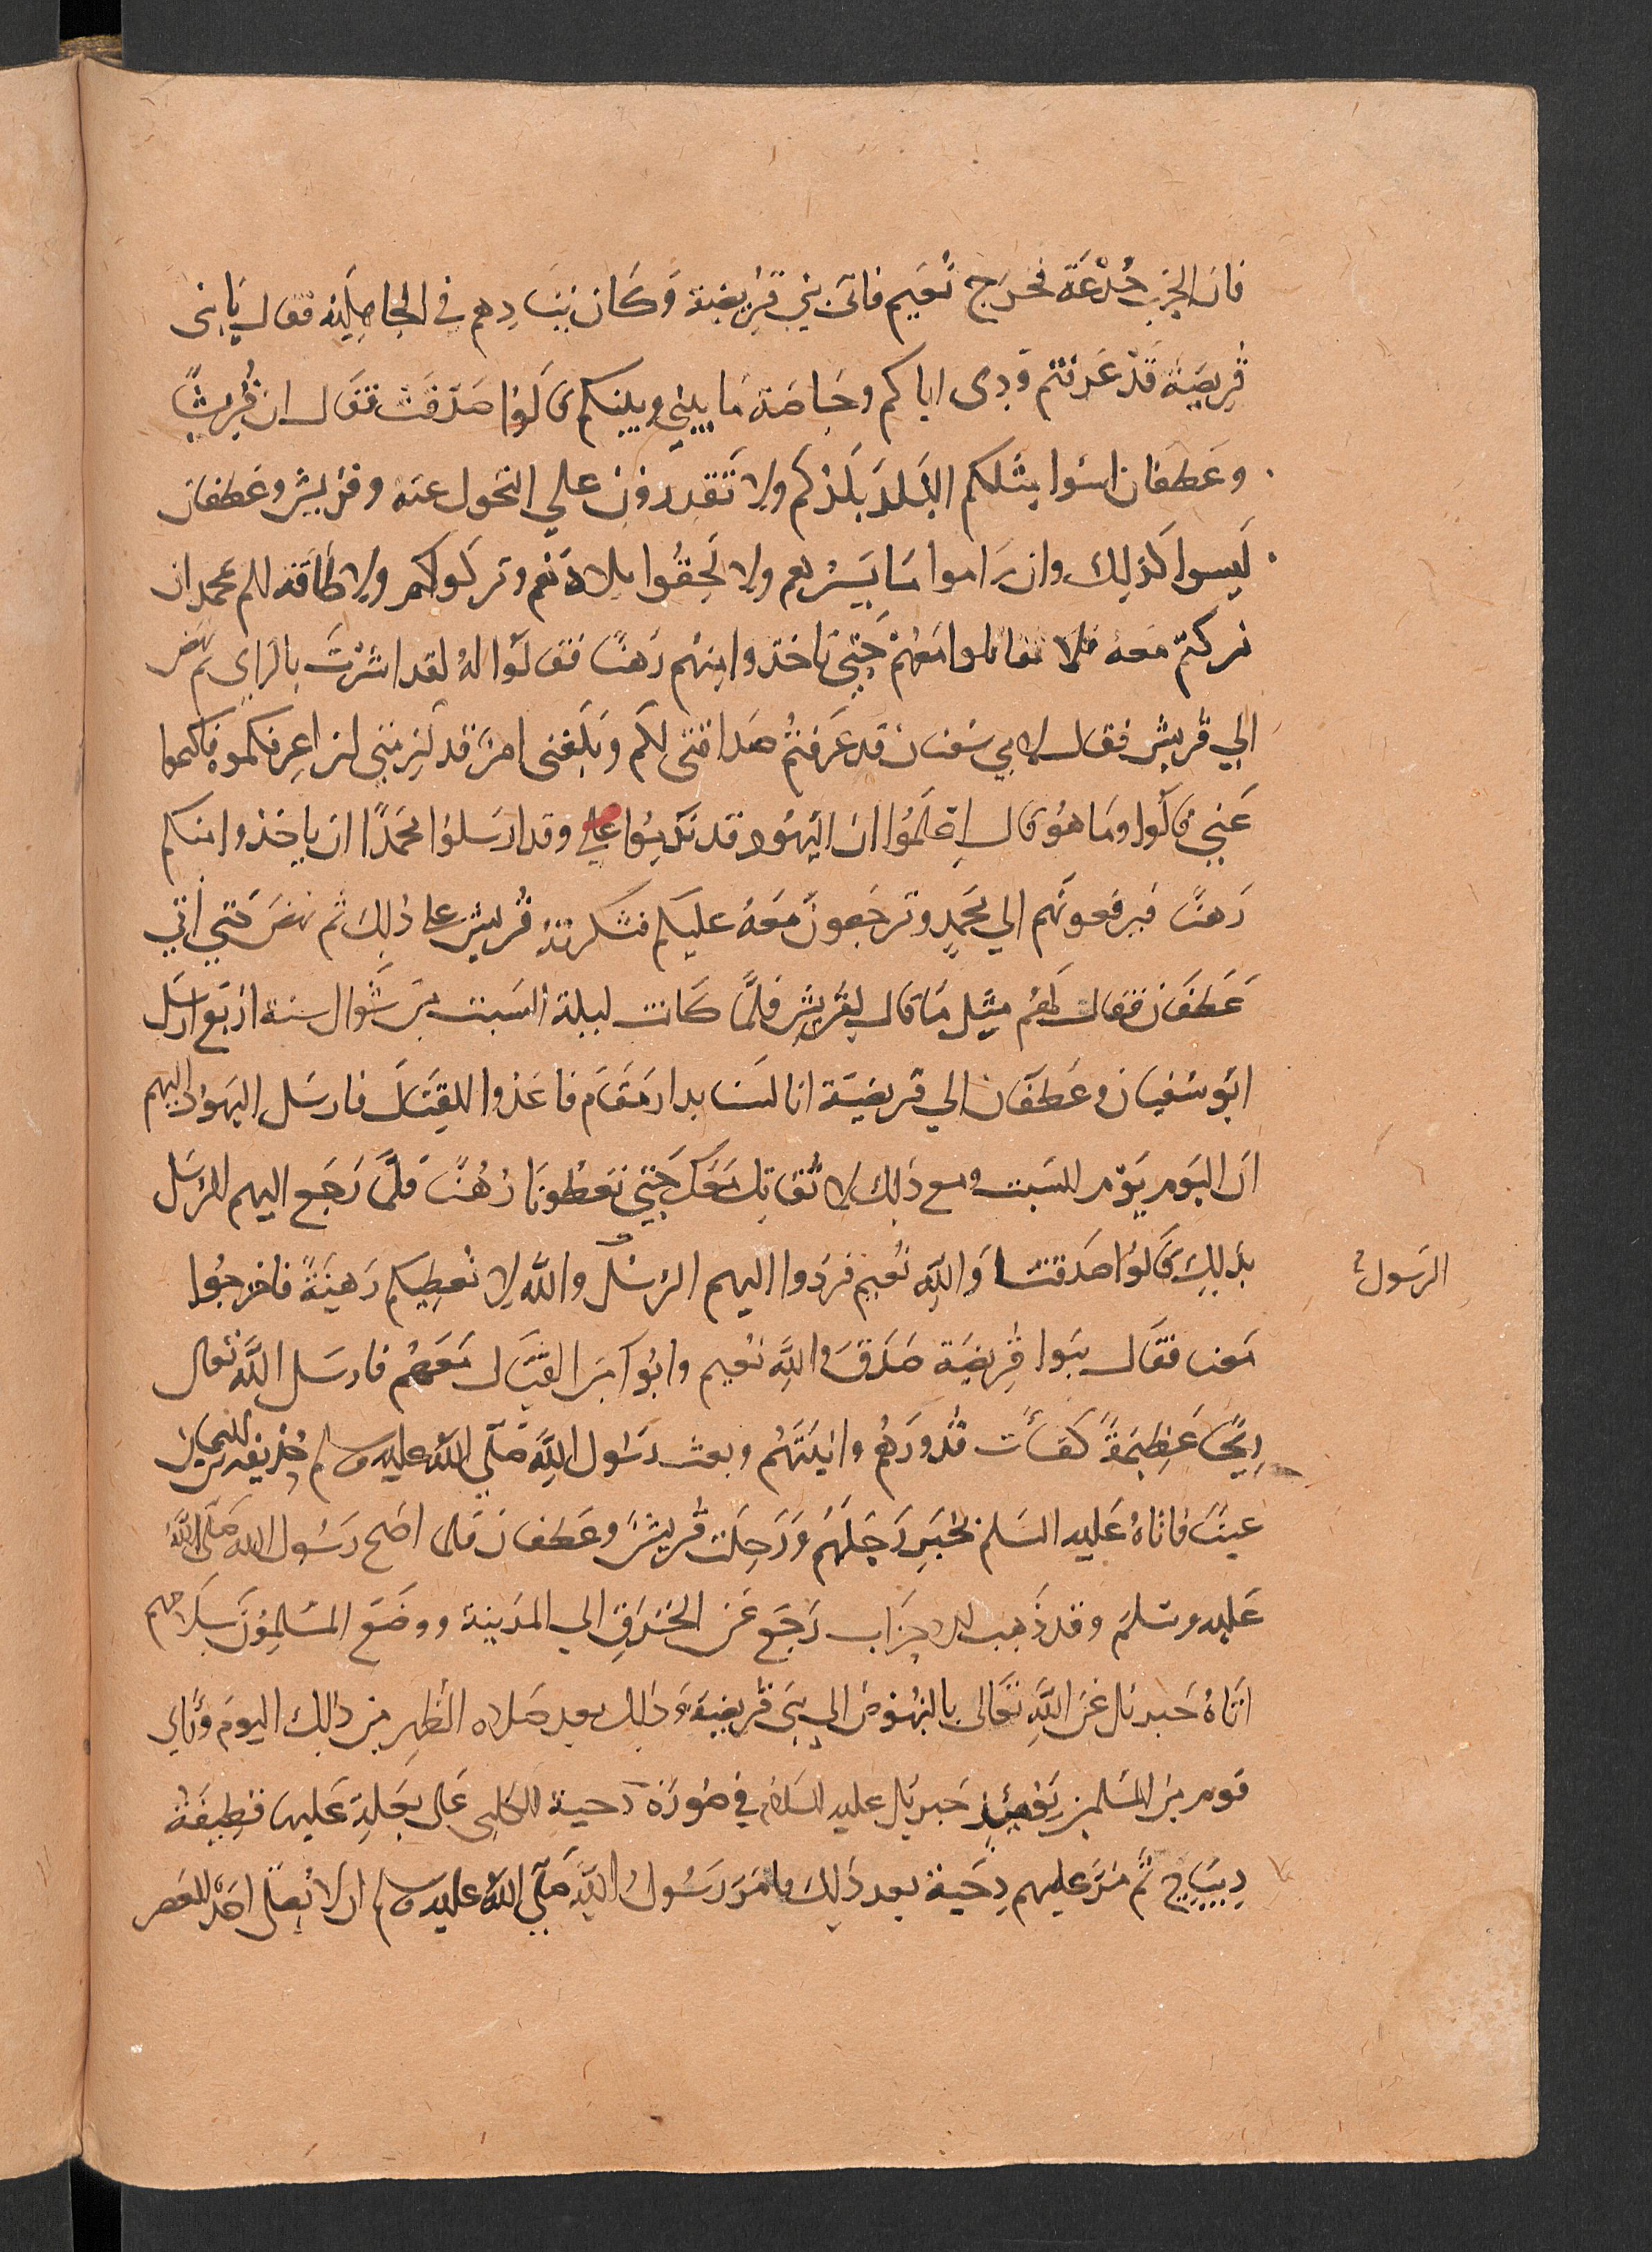 فان الحرب خُدْعَة فخرج نُعَيم فاتى بني قريضة وَكان ينادِهم في الجاهِليّه فقال يابنى
قريضة قَدْ عَرفتم وُدى اياكم وخاصَة مَا بيني وبينكم قالوا صَدقت فقال ان قُريشاً
وغَطفان ليسُوا مثلكم البَلدَ بَلدُكم ولا تَقدرون علي التحول عنه وقريش وغطفان
لَيسوا كذلِك وان رَاموا مَا يَسُرهم ولا لَحِقُوا ببلادهم وتركوكم ولا طاقَه لكم بمحمد ان
تركتم مَعه فلا تقاتلوا مَعهُمْ حَتي تاخذوا منهم رَهنًا فقالوا لهُ لقد اشرْتَ بالراي ثم نهض
الي قريش فقال لابي سفيان قد عَرفتمُ صَداقتى لكم وَبَلغنى امرٌ قد لزِمَني لن اعرِفكموه فاكتموا
عَني قالوا ومَا هُو قال اِعلَمُوا ان اليهُود قد نَدِمُوا علي وقد ارسَلوا محمَدًا ان ياخذوا منكم
رَهنًا فيرفعونَهم الي محمدٍ وترجَعونَ مَعَهُ عليكم فشكرتهُ قُريش على ذلِكَ ثم نهضَ حَتي اتي
غَطفَان فقال لَهُم مثِلَ مَا قال لِقُريش فلمَّا كانت ليلة السَبت من شَوال سنة اربَع ارسَل
ابُو سُفيان وغَطفَان الي قريضَة انا لسنا بدار مَقَام فاغدوا للقِتال فارسَل اليَهود اليهم
ان اليَوم يَوْم السَبت ومع ذلِكَ لا نُقاتِلُ مَعَكم حَتيَّ تعَطُونَا رُهُنًا فلمَّا رَجَع اليهم الرسَل
بذلِكَ قَالوُا صَدقنا وَاللَّهِ نُعَيم فردوا اليهم الرسُل واللَّه لا نُعطِيكم رَهينَةً فاخرجُوا
الرَسول
مَعنا فقال بنوا قُريضَة صَدَقَ واللَّهِ نعَيم وابُوا مِنَ القتَال مَعَهُم فارسَل اللَّه تعَالى
رِيحًا عَظِيمَةً كفَأت قُدُورَهُم وانيتَهُم وبعث رَسُول اللَّهِ صَلّى اللَّهُ عليه وسلم حُذيفه بن اليمان
عينًا فاتاهُ عَليه السَلم بخَبرِ رَحيلهُم وَرَحِلت قُريشُ وغَطفان فلما اصبح رَسُول اللَه صَلى اللَّه
عَليه وسلمَ وقد ذَهبَ الاحزاب رَجَع عَن الخَندَقِ الي المَدينة ووضَعَ المسْلِموُنَ سِلاحهم
اتاهُ جَبرئل عَن اللَّهِ تعَالى بالنهُوض الي بَني قُريضَة وذلك بعد صَلاه الظهِر من ذلِك اليَوم وَرَاي
قوم من المسْلمين يَوْمئِذٍ جبريل عليه السَلام في صُورَةِ دحيَةِ الكلبى عَلى بَغلةٍ عَليها قطِيفَةُ
دِيبَاج ثمَّ مَرَّ عليهم دِحيَة بعد ذلِكَ فامَر رَسُولُ اللَّهِ صَلّى اللَّه عليه وسلم ان لا يُصَلّ احَد العَصر